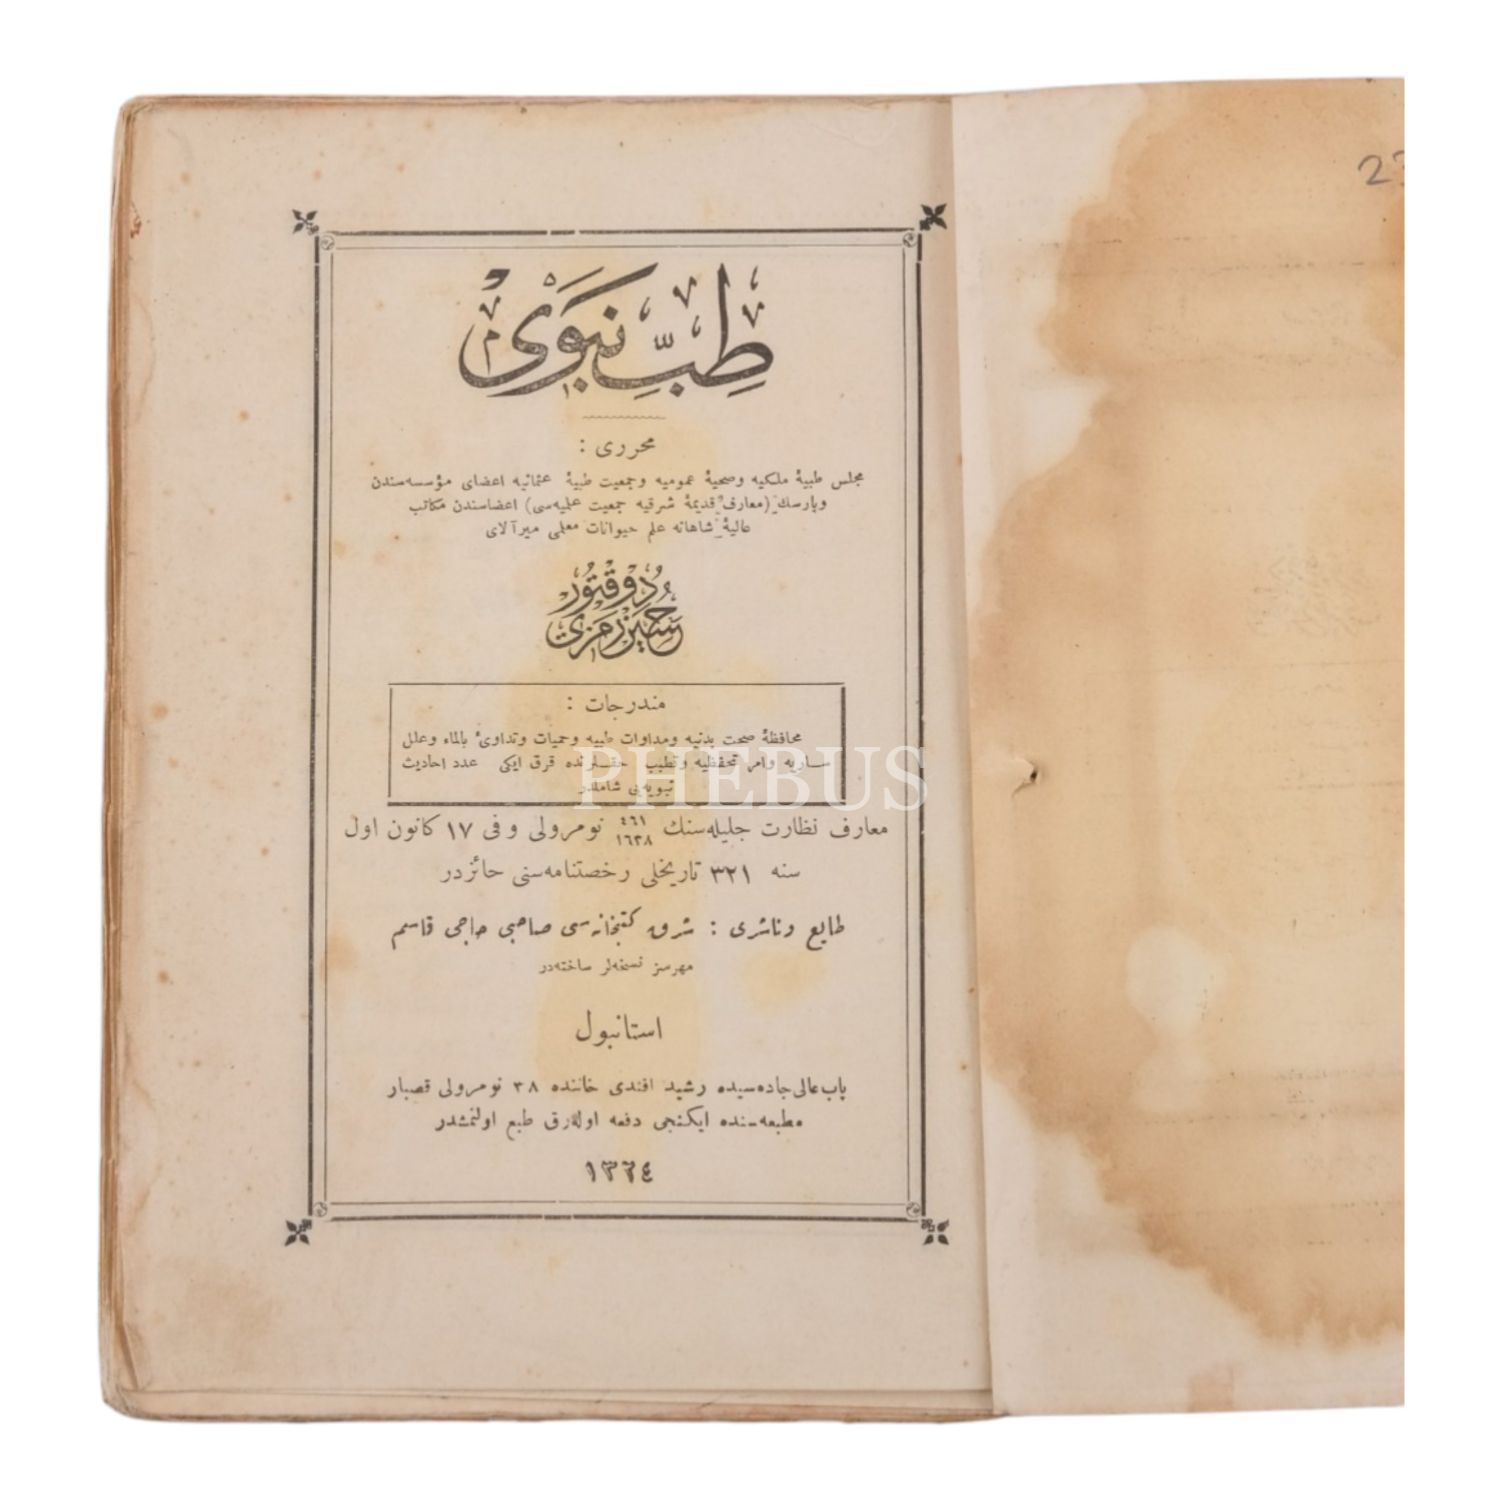 طبّ نبوى
محررى :
مجلس طبيهٔ ملكيه و صحيهٔ عموميه و جمعيت طبيهٔ عثمانيه اعضاى مؤسسه‌سندن
وپارسك (معارف قديمهٔ شرقيه جمعيت علميه‌سى) اعضاسندن مكاتب
عاليهٔ شاهانه علم حيوانات معلمى ميرآلاى
دوقتور
حسين رمزى
مندرجات :
محافظهٔ صحت بدنيه ومداوات طبيه وحميات وتداوئ بالماء وعلل
ساريه وامر تحفظيه وتطبيب حقلرنده قرق ايكى عدد احاديث
نبويه‌يى شاملدر
معارف نظارت جليله‌سنك ٤٦١ ١٦٣٨ نومرولى و فى ١٧ كانون اول
سنه ٣٢١ تاريخلى رخصتنامه‌سنى حائزدر
طابع وناشرى : شرق كتبخانه‌سى صاحبى حاجى قاسم
مهرسز نسخه‌لر ساخته‌در
استانبول
باب عالى جاده‌سيده رشيد افندى خاننده ٣٨ نومرولى قصبار
مطبعه‌سنده ايكنجى دفعه اوله‌رق طبع اولنمشدر
١٣٢٤
PHEBUS